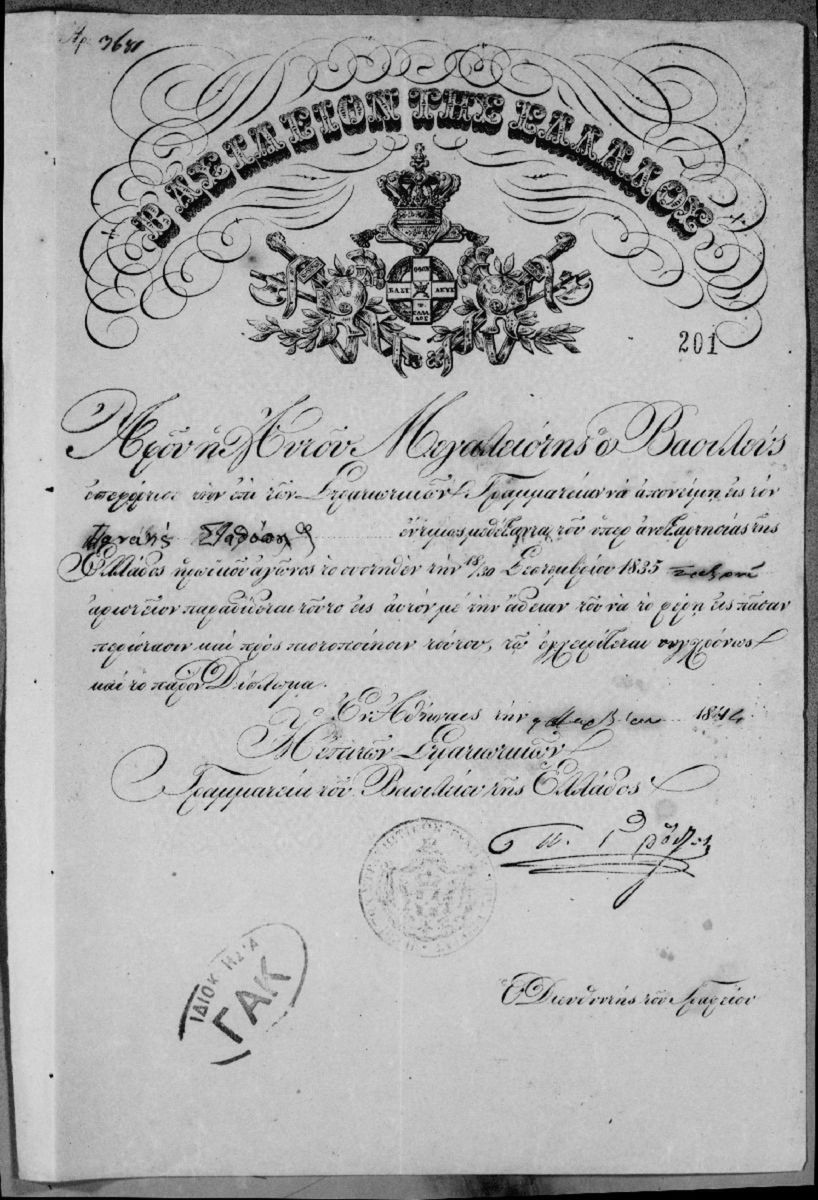 Αρ. 3681
ΒΑΣΙΛΕΙΟΝ ΤΗΣ ΕΛΛΑΔΟΣ
ΟΘΩΝ
ΒΑΣΙ ΛΕΥΣ
ΕΛΛΑ
ΔΟΣ
201
Ἀφοῦ ἡ Αὐτοῦ Μεγαλειότης ὁ Βασιλεὺς
τὴν ἐπὶ τῶν Στρατιωτικῶν Γραμματείαν νὰ ἀπονείμῃ εἰς τὸν
ἐντίμως μεθέξαντα τοῦ ὑπὲρ ἀνεξαρτησίας τῆς
Ἑλλάδος ἡρωϊκοῦ ἀγῶνος τὸ συστηθὲν τὴν 18/30 Σεπτεμβρίου 1835
ἀριστεῖον παραδίδεται τοῦτο εἰς αὐτὸν μὲ τὴν ἄδειαν τοῦ νὰ τὸ φέρῃ εἰς πᾶσαν
περίστασιν καὶ πρὸς πιστοποίησιν τούτου, τῷ ἐγχειρίζεται συγχρόνως
καὶ τὸ παρὸν Δίπλωμα.
Ἐν Ἀθήναις τὴν 184
Ἡ ἐπὶ τῶν Στρατιωτικῶν
Γραμματεία τοῦ Βασιλείου τῆς Ἑλλάδος
ΙΔΙΟΚΤΗΣΙΑ
ΓΑΚ
Ὁ Διευθυντὴς τοῦ Γραφείου